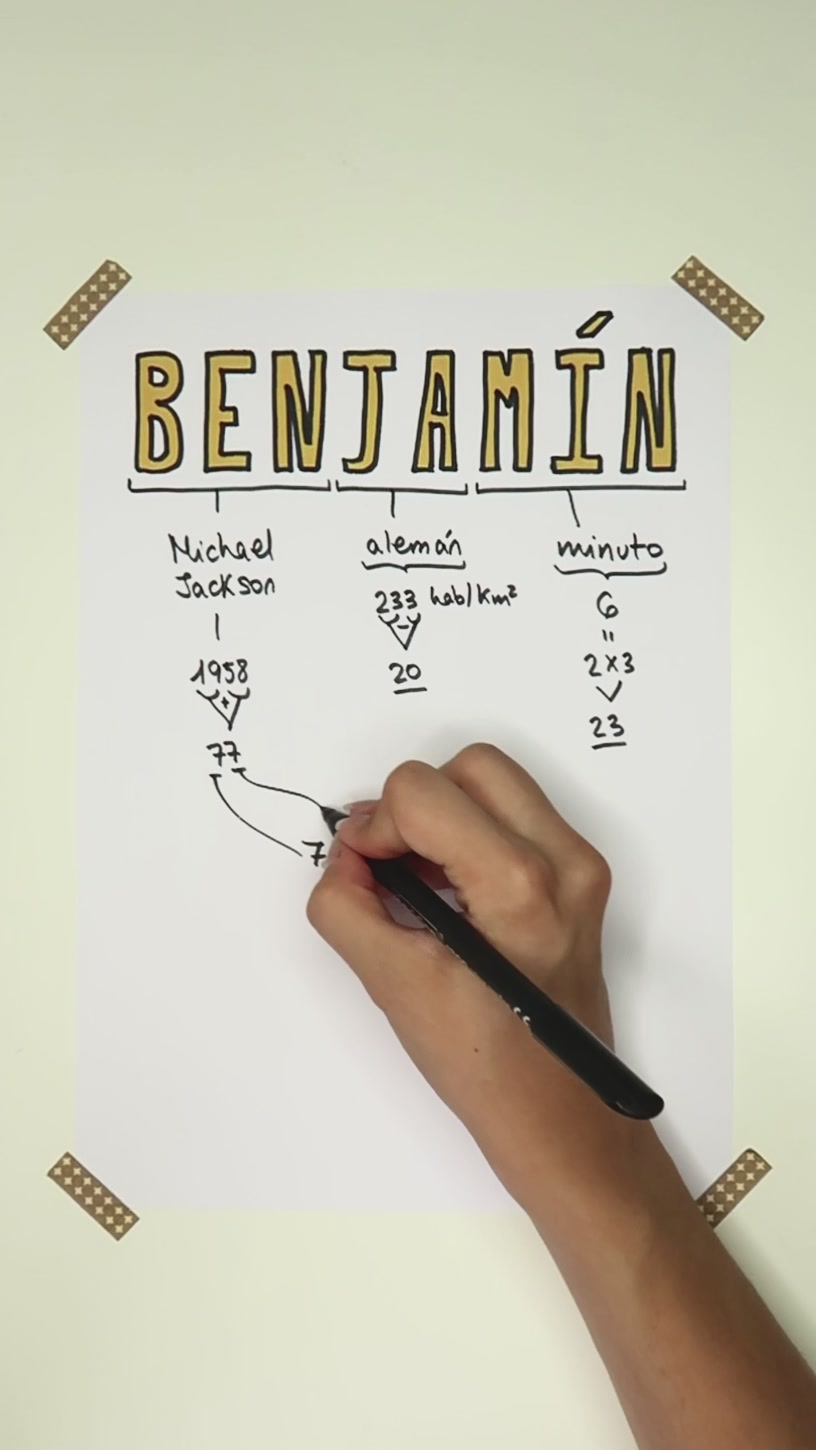 BENJAMÍN
Michael
Jackson
1958
+
77
7
alemán
233 hab/Km²
-
20
minuto
6
=
2x3
23